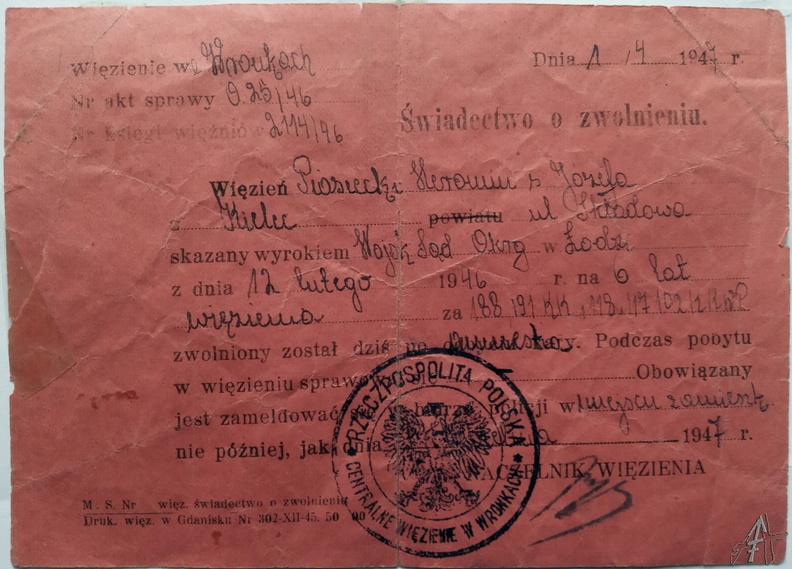 Więzienie we Wronkach
Dnia 1/4 1947 r.
Nr akt sprawy 0.25/46
Nr księgi więźniów 2114/46
Świadectwo o zwolnieniu.
Więzień Piasecki Heronim s Józefa
z Kielc powiatu ul Składowa
skazany wyrokiem Wojsk Sąd Okrg w Łodzi
z dnia 12 lutego 1946 r. na 6 lat
więzienia za 188 191 KK, 118, 47 102 KK WP
zwolniony został dziś po amnestia kary. Podczas pobytu
w więzieniu sprawo Obowiązany
jest zameldować w miejscu zamieszk
nie później, jak dnia 1947 r.
NACZELNIK WIĘZIENIA
RZECZPOSPOLITA POLSKA
CENTRALNE WIĘZIENIE W WRONKACH
M. S. Nr więz. świadectwo o zwolnieniu
Druk. więz. w Gdańsku Nr 302-XII-45. 50 00